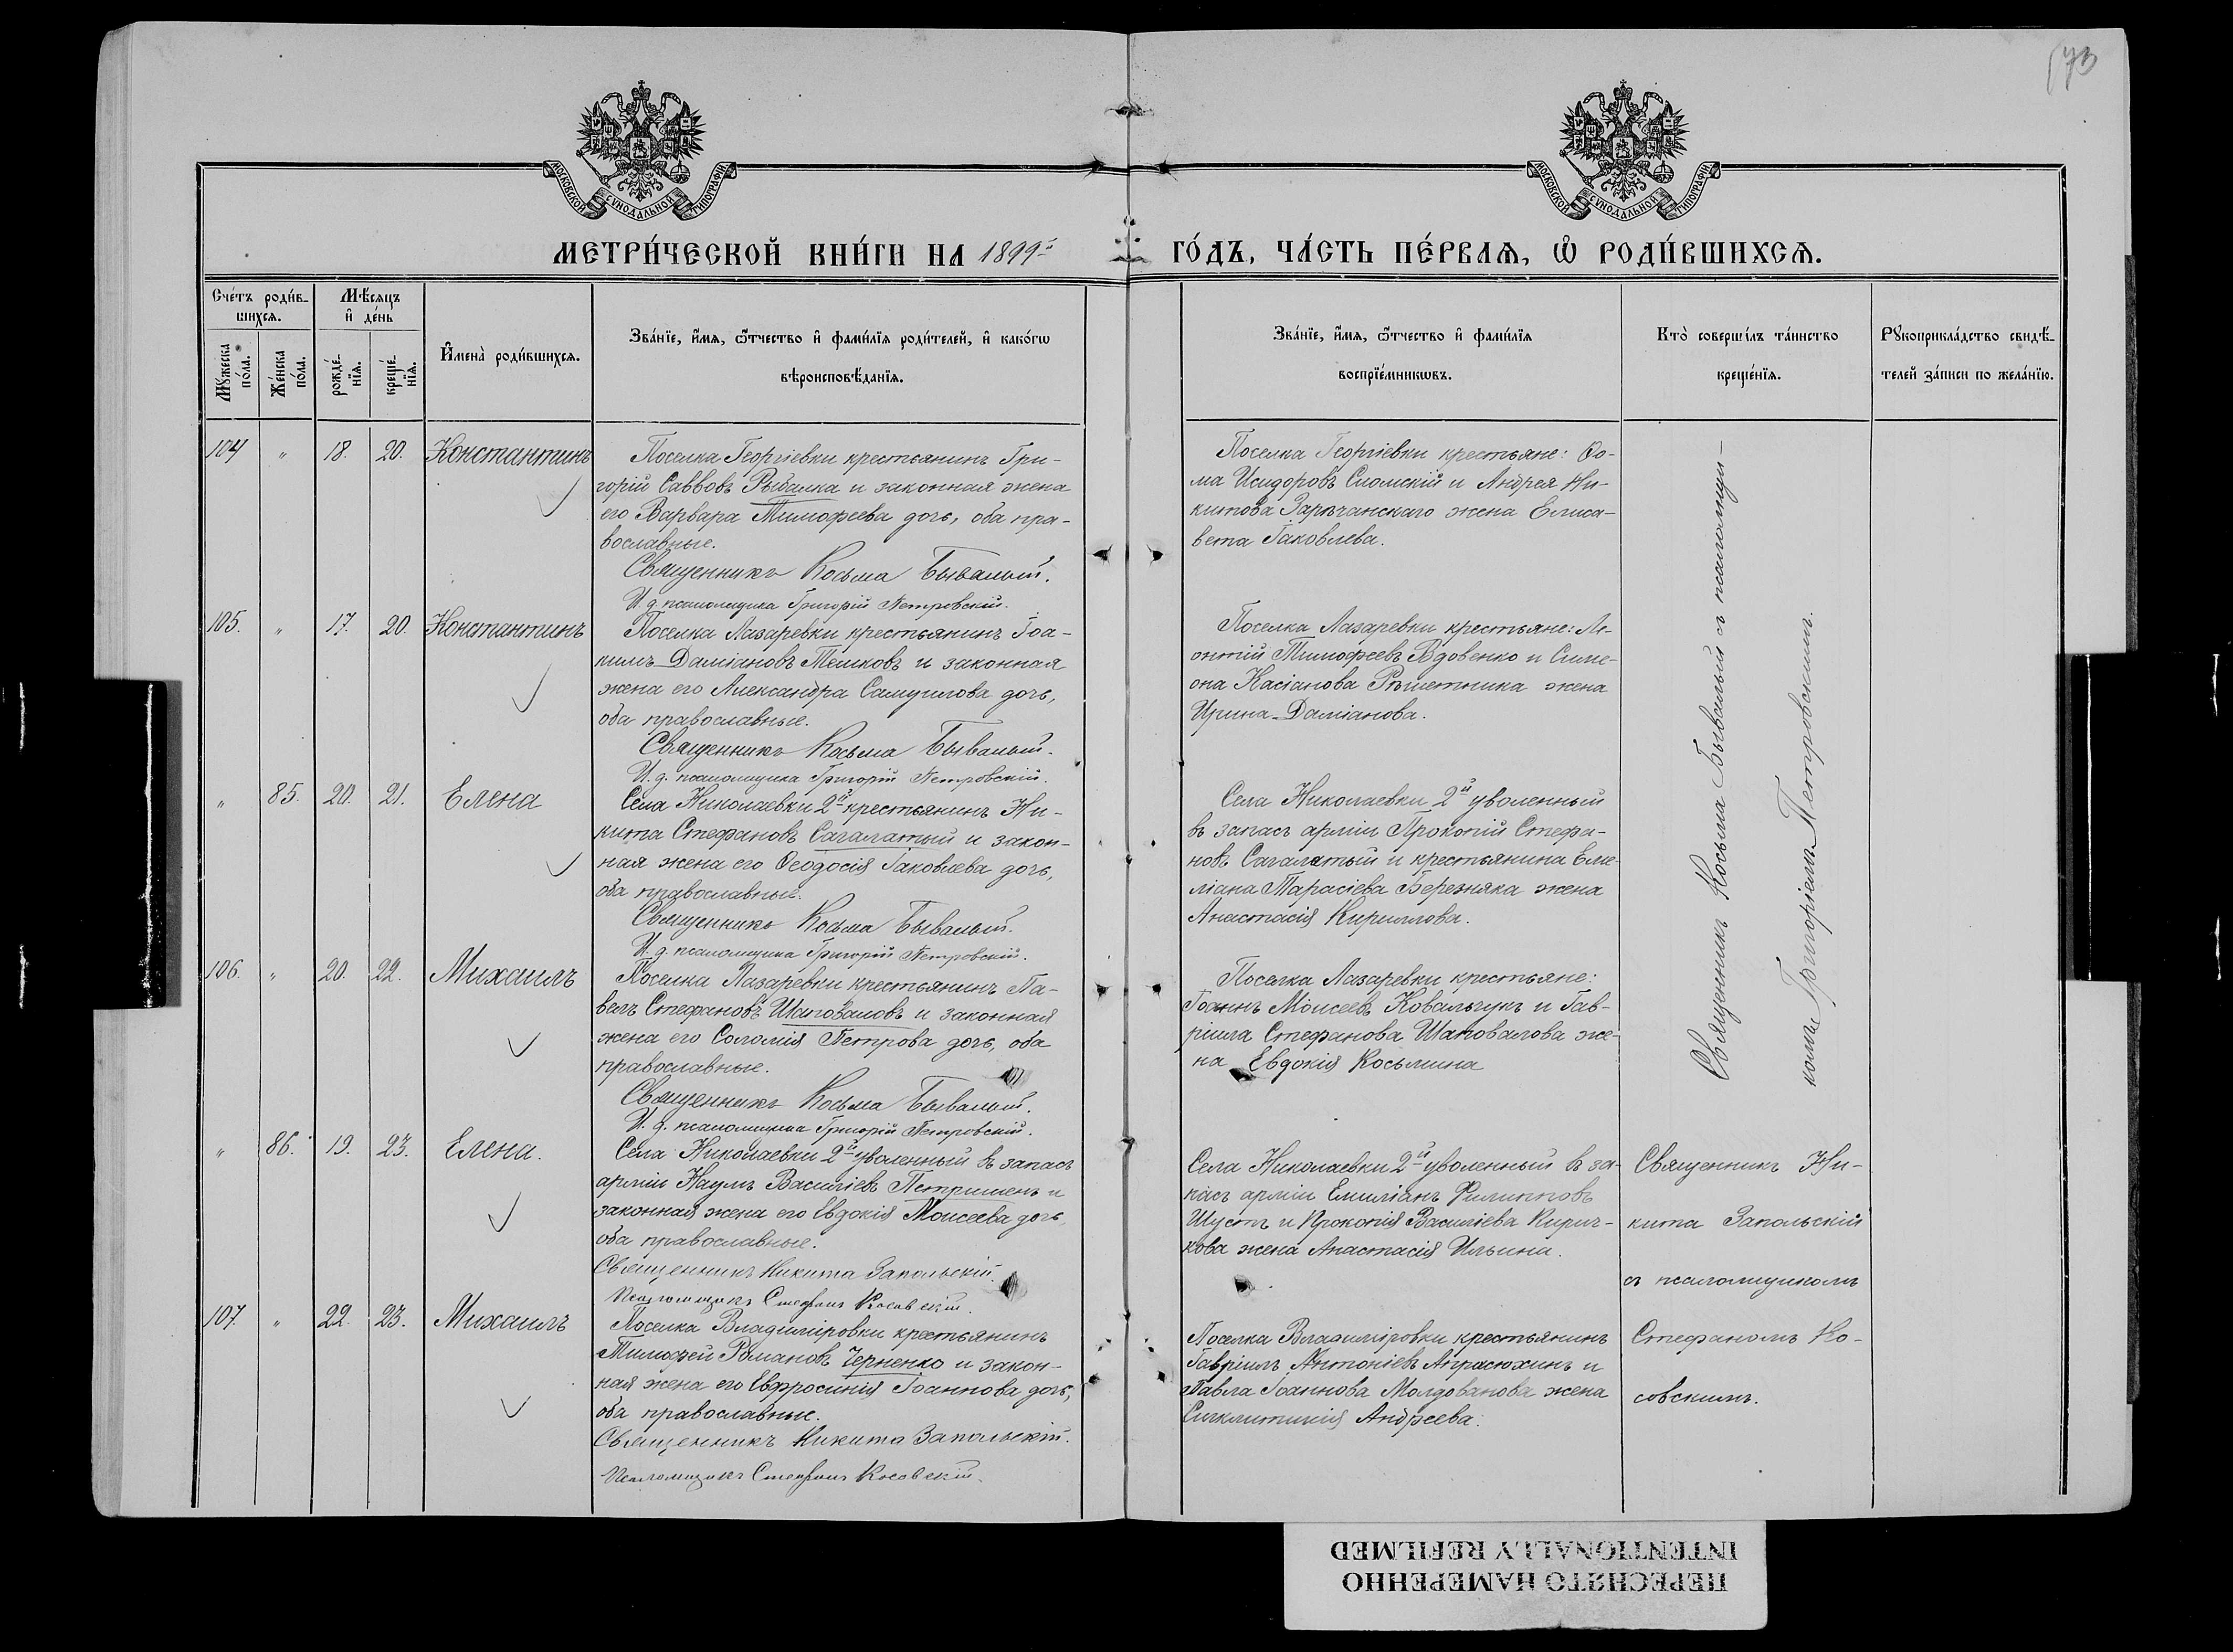 173
МОСКОВСКОЙ СѴНОДАЛЬНОЙ ТИПОГРАФІИ
МОСКОВСКОЙ СѴНОДАЛЬНОЙ ТИПОГРАФІИ
МЕТРИ́ЧЕСКОЙ КНИ́ГИ НА 1899й
ГО́ДЪ, ЧА́СТЬ ПЕ́РВАѦ, Ѽ РОДИ́ВШИХСѦ.
Сче́тъ роди́в-
шихсѧ.
Мꙋ́жеска по́ла.
Же́нска по́ла.
Мѣ́сѧцъ и҆ де́нь
рожде́-нїѧ.
креще́-нїѧ.
И҆мена̀ роди́вшихсѧ.
Зва́нїе, и҆́мѧ, ѻ҆́тчество и҆ фами́лїѧ роди́телей, и҆ како́гѡ
вѣроисповѣ́данїѧ.
Зва́нїе, и҆́мѧ, ѻ҆́тчество и҆ фами́лїѧ
воспрїе́мникѡвъ.
Кто̀ соверши́лъ та́инство
креще́нїѧ.
Рꙋкоприкла́дство свидѣ́-
телей за́писи по жела́нїю.
104 " 18. 20. Константинъ
Поселка Георгіевки крестьянинъ Гри-
горій Саввовъ Рыбалка и законная жена
его Варвара Тимофеева дочь, оба пра-
вославные.
Священникъ Косьма Бывалый.
И. д. псаломщика Григорій Петровскій.
Поселка Георгіевки крестьяне: Ѳо-
ма Исидоровъ Сломскій и Андрея Ни-
китова Зарѣчанскаго жена Елиса-
вета Іаковлева.
105. " 17. 20. Константинъ
Поселка Лазаревки крестьянинъ Іоа-
кимъ Даміановъ Тешковъ и законная
жена его Александра Самуилова дочь,
оба православные.
Священникъ Косьма Бывалый.
И. д. псаломщика Григорій Петровскій.
Поселка Лазаревки крестьяне: Ле-
онтій Тимофеевъ Вдовенко и Симе-
она Касіанова Рѣшетника жена
Ирина Даміанова.
" 85. 20. 21. Елена
Села Николаевки 2й крестьянинъ Ни-
кита Стефановъ Сагалатый и закон-
ная жена его Ѳеодосія Іаковлева дочь,
оба православные.
Священникъ Косьма Бывалый.
И. д. псаломщика Григорій Петровскій.
Села Николаевки 2й уволенный
въ запасъ арміи Прокопій Стефа-
новъ Сагалатый и крестьянина Еме-
ліана Тарасіева Березняка жена
Анастасія Кириллова.
106. " 20. 22. Михаилъ
Поселка Лазаревки крестьянинъ Па-
велъ Стефановъ Шаповаловъ и законная
жена его Соломія Петрова дочь, оба
православные.
Священникъ Косьма Бывалый.
И. д. псаломщика Григорій Петровскій.
Поселка Лазаревки крестьяне:
Іоаннъ Моисеевъ Ковальчукъ и Гав-
ріила Стефанова Шаповалова же-
на Евдокія Косьмина
Священникъ Косьма Бывалый съ псаломщи-
комъ Григоріемъ Петровскимъ.
" 86. 19. 23. Елена.
Села Николаевки 2й уволенный въ запасъ
арміи Наумъ Василіевъ Петришенъ и
законная жена его Евдокія Моисеева дочь,
оба православные.
Священникъ Никита Запольскій.
Псаломщикъ Стефанъ Косовскій.
Села Николаевки 2й уволенный въ за-
пасъ арміи Емиліанъ Филипповъ
Шустъ и Прокопія Василіева Кирич-
кова жена Анастасія Ильина.
107. " 22. 23. Михаилъ
Поселка Владиміровки крестьянинъ
Тимофей Романовъ Черненко и закон-
ная жена его Евфросинія Іоаннова дочь,
оба православные.
Священникъ Никита Запольскій.
Псаломщикъ Стефанъ Косовскій.
Поселка Владиміровки крестьянинъ
Гавріилъ Антоніевъ Апрасюхинъ и
Павла Іоаннова Молдованова жена
Синклитикія Андреева.
Священникъ Ни-
кита Запольскій
съ псаломщикомъ
Стефаномъ Ко-
совскимъ.
ПЕРЕСНЯТО НАМЕРЕННО
INTENTIONALLY REFILMED